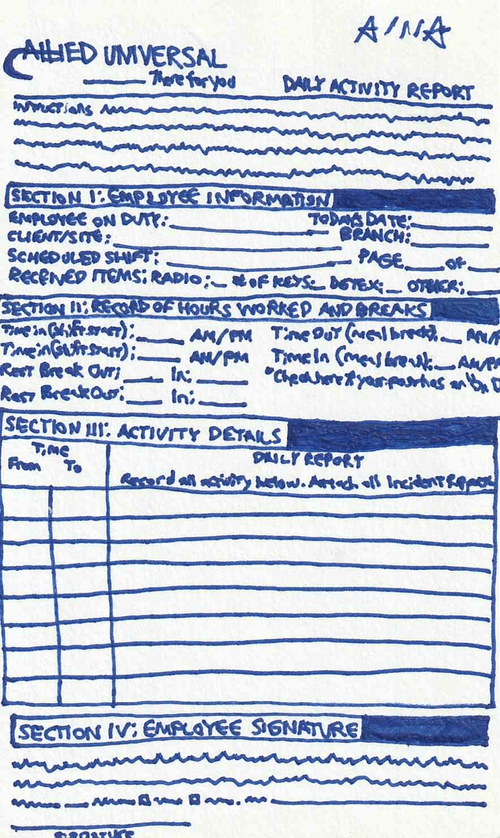 A/NA
ALLIED UNIVERSAL
There for you
DAILY ACTIVITY REPORT
INSTRUCTIONS
SECTION I: EMPLOYEE INFORMATION
EMPLOYEE ON DUTY: TODAYS DATE:
CLIENT/SITE: BRANCH:
SCHEDULED SHIFT: PAGE OF
RECEIVED ITEMS: RADIO: # OF KEYS: DETEX: OTHER:
SECTION II: RECORD OF HOURS WORKED AND BREAKS
Time in (shift start): AM/PM Time Out (meal break):
Time in (shift start): AM/PM Time In (meal break): AM/PM
Rest Break Out: In: *Check here if your post has an On D
Rest Break Out: In:
SECTION III: ACTIVITY DETAILS
Time
From To
DAILY REPORT
Record all activity below. Attach all Incident Reports
SECTION IV: EMPLOYEE SIGNATURE
SIGNATURE